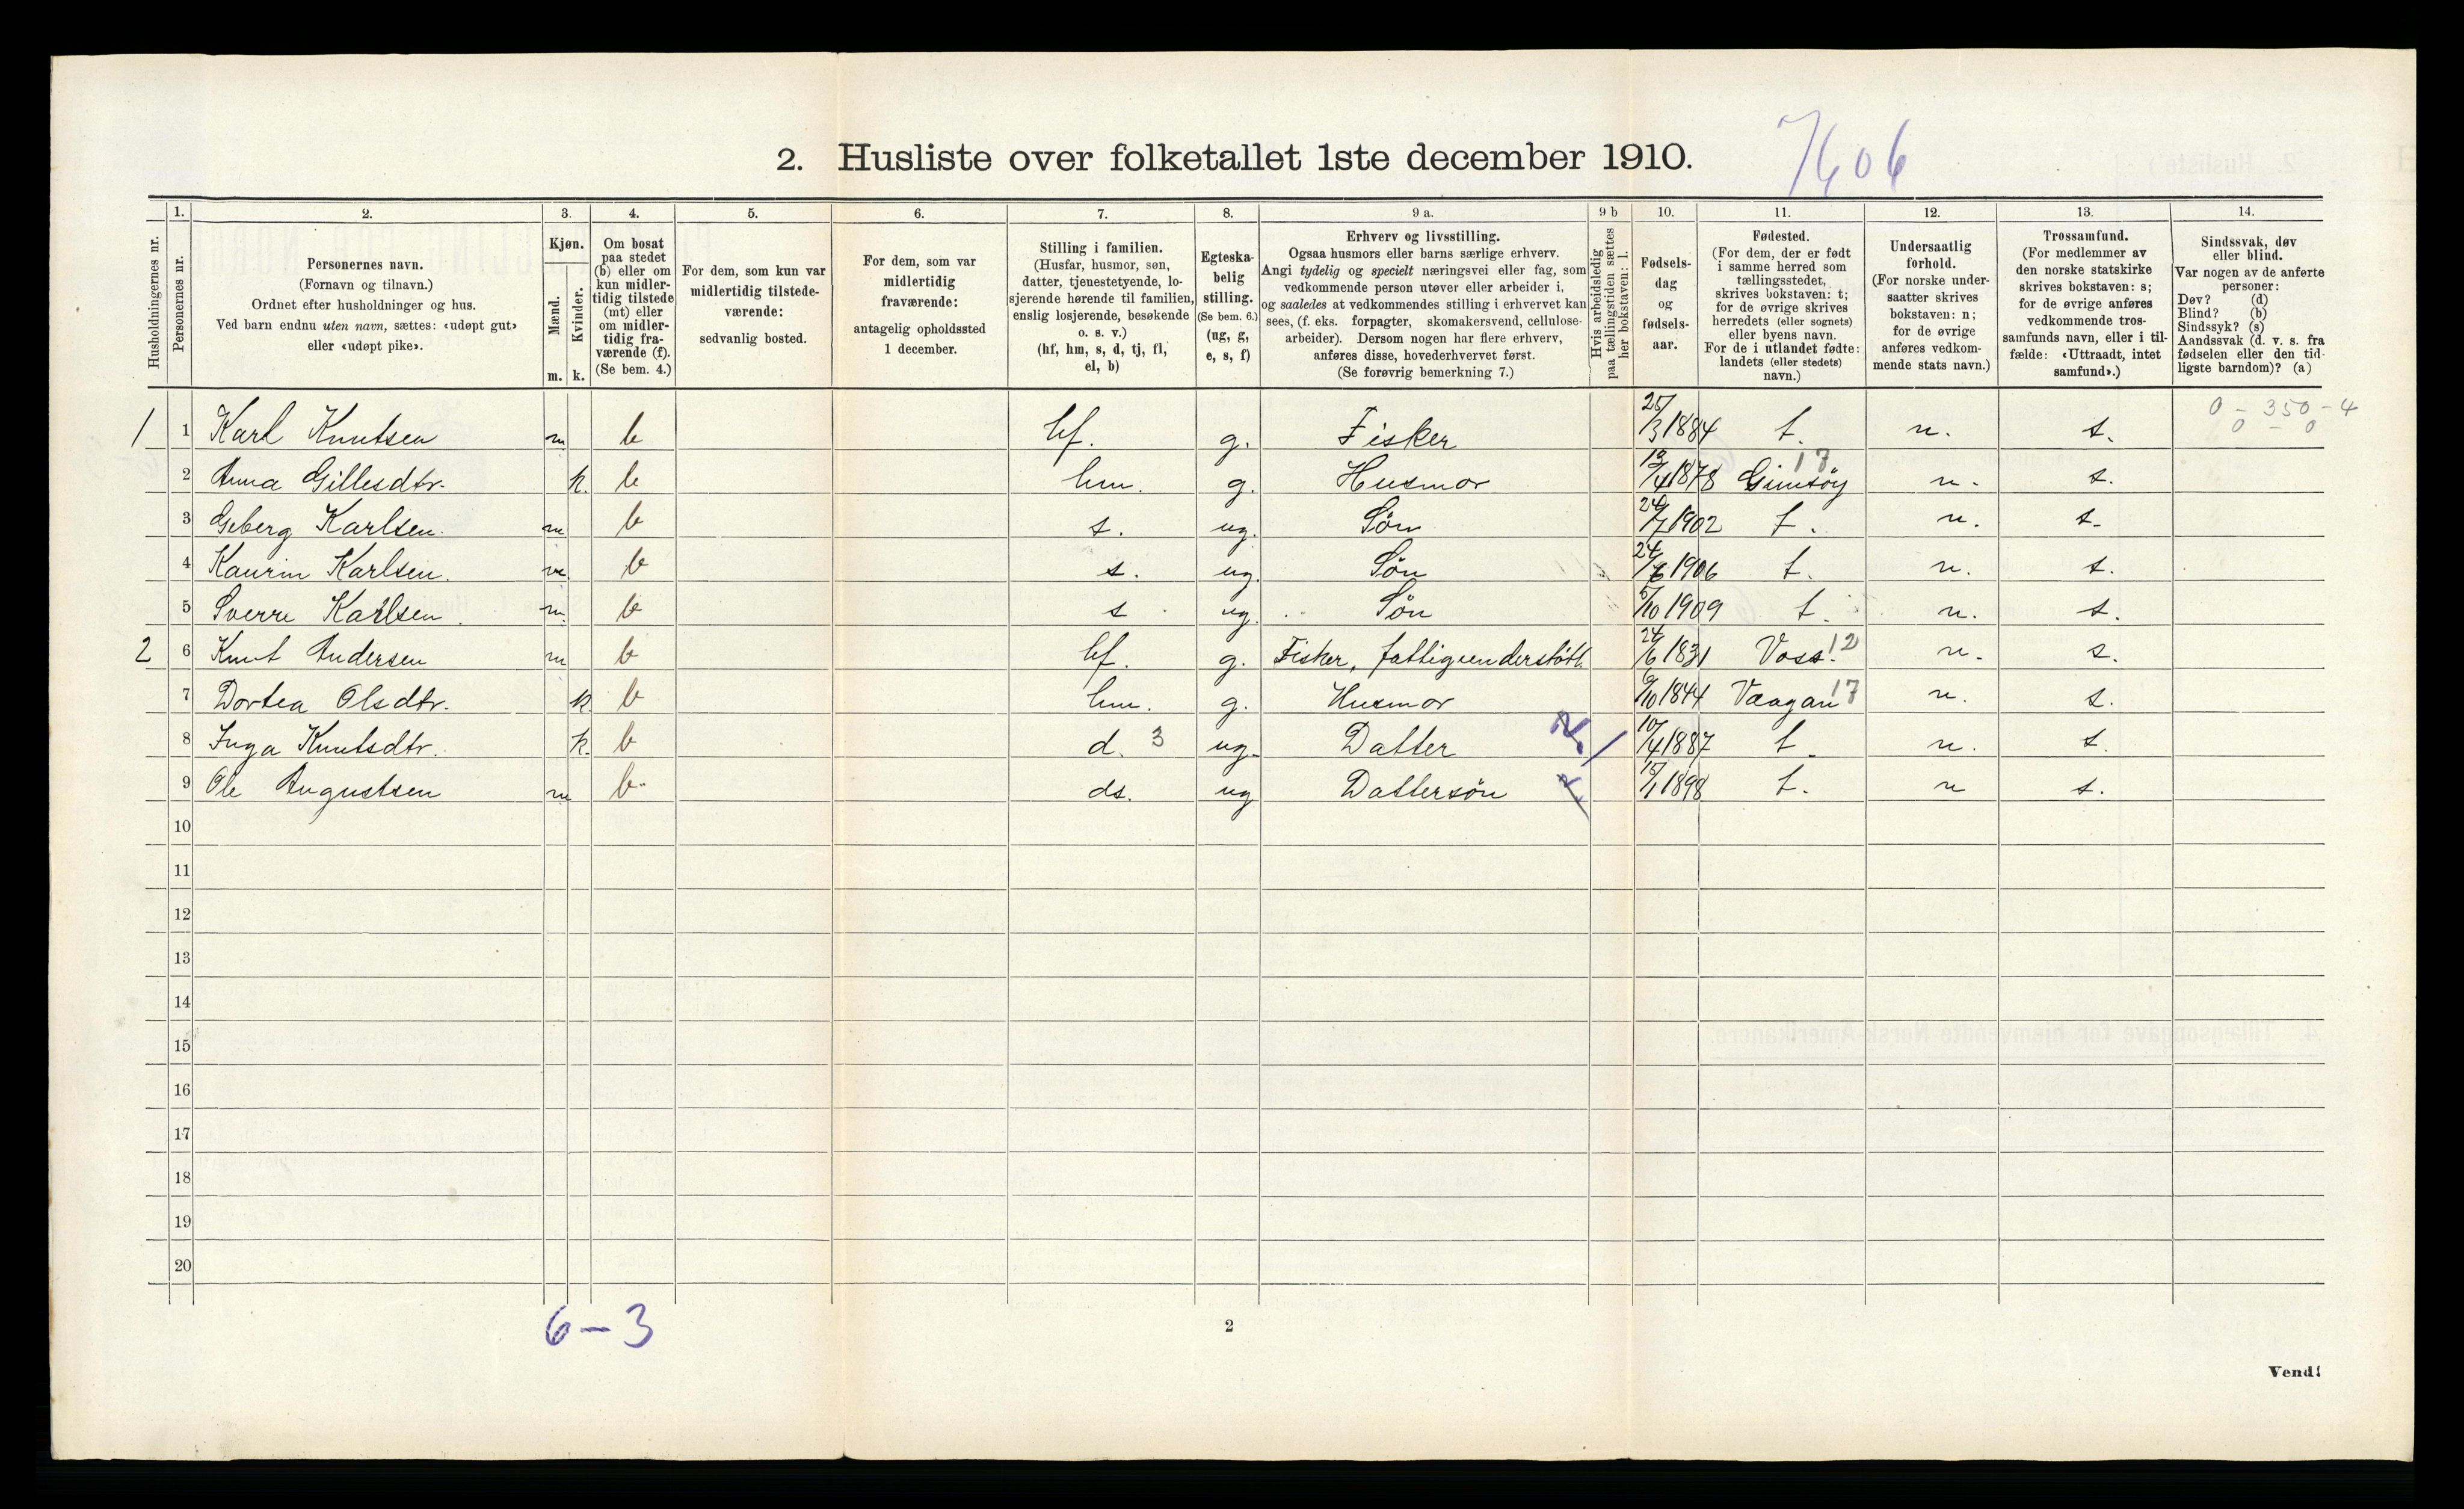 7606
2. Husliste over folketallet 1ste december 1910.
Husholdningernes nr.
1. Personernes nr.
2. Personernes navn.
(Fornavn og tilnavn.)
Ordnet efter husholdninger og hus.
Ved barn endnu uten navn, sættes: «udøpt gut»
eller «udøpt pike».
3. Kjøn.
Mænd. m.
Kvinder. k.
4. Om bosat
paa stedet
(b) eller om
kun midler-
tidig tilstede
(mt) eller
om midler-
tidig fra-
værende (f).
(Se bem. 4.)
5. For dem, som kun var
midlertidig tilstede-
værende:
sedvanlig bosted.
6. For dem, som var
midlertidig
fraværende:
antagelig opholdssted
1 december.
7. Stilling i familien.
(Husfar, husmor, søn,
datter, tjenestetyende, lo-
sjerende hørende til familien,
enslig losjerende, besøkende
o. s. v.)
(hf, hm, s, d, tj, fl,
el, b)
8. Egteska-
belig
stilling.
(Se bem. 6.)
(ug, g,
e, s, f)
9 a. Erhverv og livsstilling.
Ogsaa husmors eller barns særlige erhverv.
Angi tydelig og specielt næringsvei eller fag, som
vedkommende person utøver eller arbeider i,
og saaledes at vedkommendes stilling i erhvervet kan
sees, (f. eks. forpagter, skomakersvend, cellulose-
arbeider). Dersom nogen har flere erhverv,
anføres disse, hovederhvervet først.
(Se forøvrig bemerkning 7.)
9 b Hvis arbeidsledig
paa tællingstiden sættes
her bokstaven: l.
10. Fødsels-
dag
og
fødsels-
aar.
11. Fødested.
(For dem, der er født
i samme herred som
tællingsstedet,
skrives bokstaven: t;
for de øvrige skrives
herredets (eller sognets)
eller byens navn.
For de i utlandet fødte:
landets (eller stedets)
navn.)
12. Undersaatlig
forhold.
(For norske under-
saatter skrives
bokstaven: n;
for de øvrige
anføres vedkom-
mende stats navn.)
13. Trossamfund.
(For medlemmer av
den norske statskirke
skrives bokstaven: s;
for de øvrige anføres
vedkommende tros-
samfunds navn, eller i til-
fælde: «Uttraadt, intet
samfund».)
14. Sindssvak, døv
eller blind.
Var nogen av de anførte
personer:
Døv? (d)
Blind? (b)
Sindssyk? (s)
Aandssvak (d. v. s. fra
fødselen eller den tid-
ligste barndom)? (a)
0 - 350 - 4
0 - 0
1 1 Karl Knutsen m b hf. g. Fisker 25/3 1884 t. n. s.
2 Anna Gillesdtr. k. b hm. g. Husmor 13/4 1878 Gimsøy 17 n. s.
3 Geberg Karlsen. m b s. ug. Søn 1902 t. n. s.
4 Kaurin Karlsen. m. b s. ug. Søn 1906 t. n. s.
5 Sverre Karlsen. m. b s ug. Søn 5/10 1909 t. n. s.
2 6 Knut Andersen m b hf. g. Fisker, fattigunderstøtt. 24/6 1831 Voss. 12 n. s.
7 Dortea Olsdtr. k. b hm. g. Husmor 9/10 1844 Vaagan 17 n. s.
8 Inga Knutsdtr. k. b d. 3 ug. Datter 10/4 1887 t. n. s.
9 Ole Augustsen m b. ds. ug Dattersøn 15/1 1898 t. n s.
10
11
12
13
14
15
16
17
18
19
20
6-3
2
Vend!